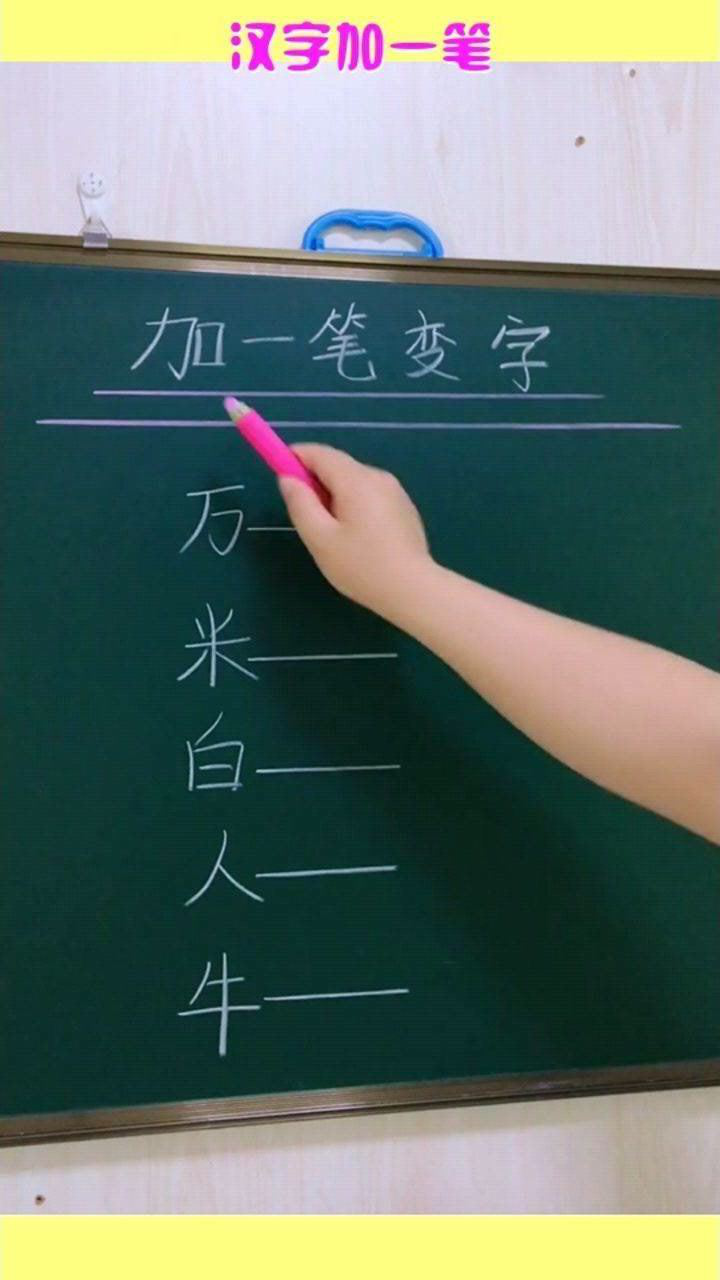 汉字加一笔
加一笔变字
万——
米——
白——
人——
牛——